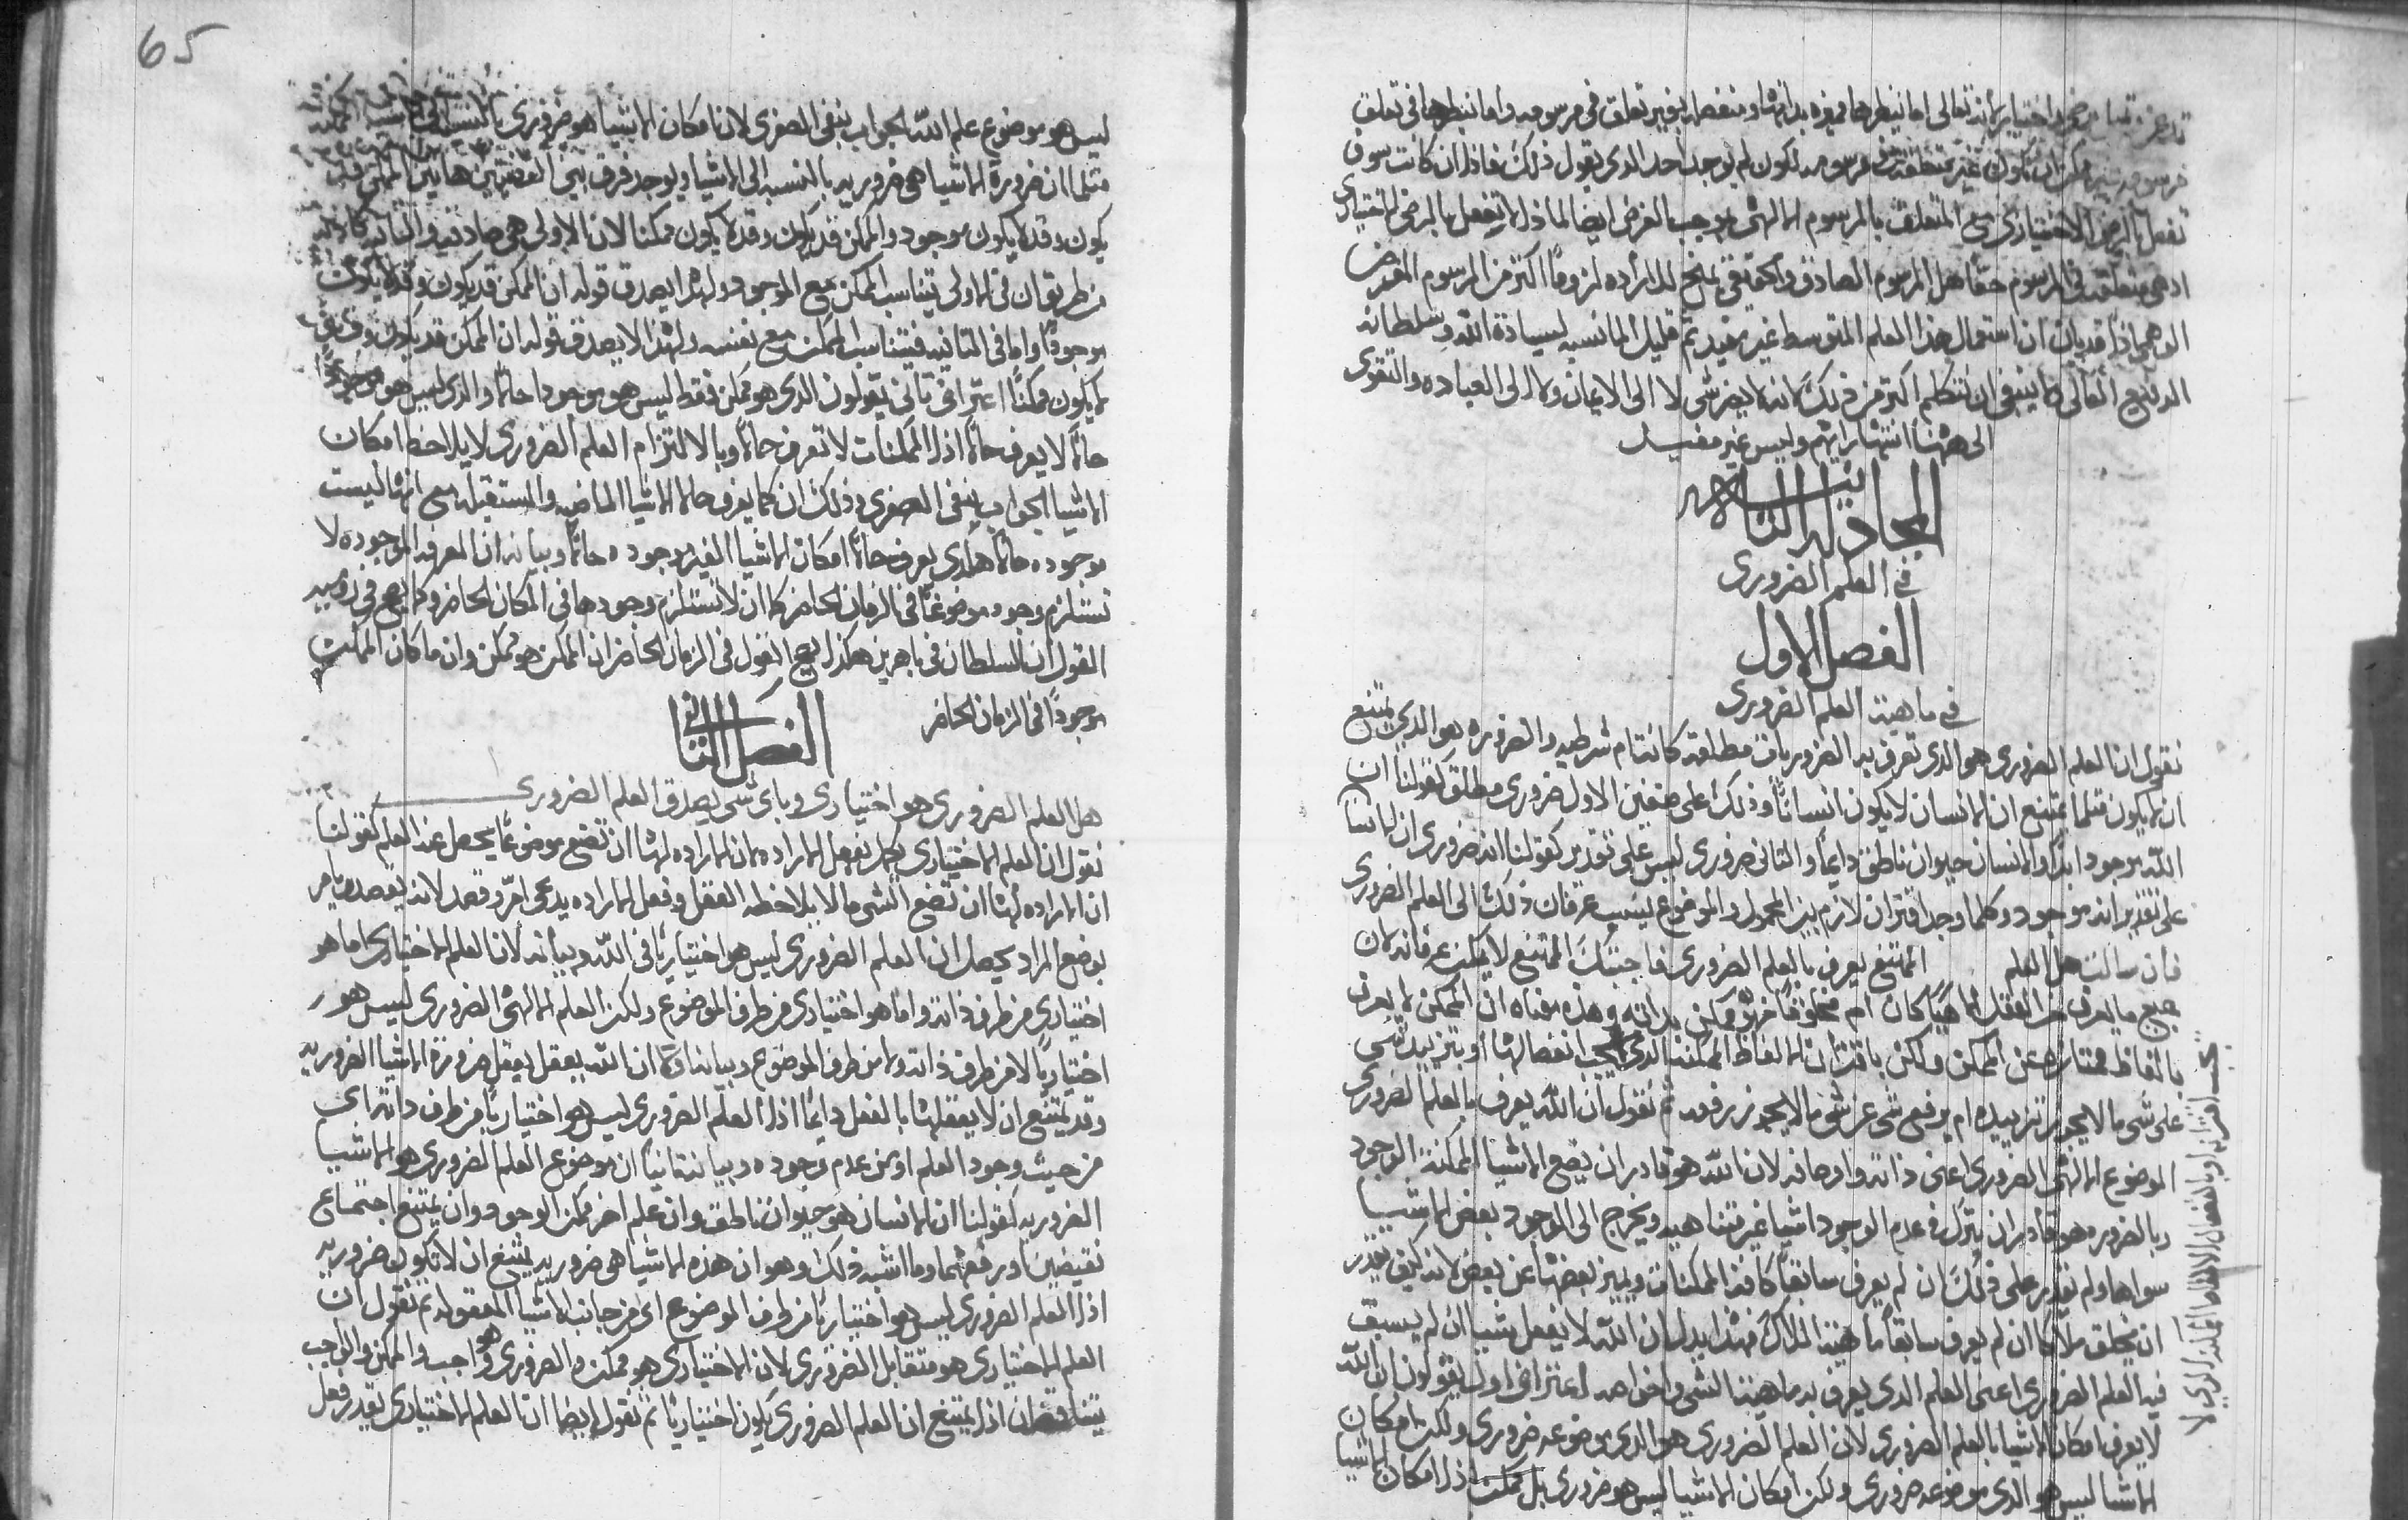 تفعل بالمرض الاختياري مع المتعلقه بالمرسوم الالهي يوجب الغرض ايضا لماذا لا تفعل بالمرض الاختياري
اد هي متعلقه في المرسوم حقا هل المرسوم الصادق والحقيقي يمنح للاراده لزوما اكثر من المرسوم المفروض
الوهمي اذا قد بان ان استعمال هذا العلم المتوسط غير مفيد ثم قليل المانسبه لسيادة الله وسلطانه
الرفيع العالي ولا ينبغي ان نتكلم اكثر من ذلك لانه لا يفر شي لا الى الايمان ولا الى العباده والتقوى
الى ههنا انتها رايهم وليس غير مفيد
المجادله الثالثه
في العلم الضروري
الفصل الاول
في ماهية العلم الضروري
نقول ان العلم الضروري هو الدي تعرف به الضروريات مطلقه كانت ام شرطيه والضروره هو الدي يمتنع
ان لا يكون مثلما يمتنع ان الانسان لا يكون انسانا وذلك على صنفين الاول ضروري مطلق كقولنا ان
الله موجود ابدا والانسان حيوان ناطق دايما والثاني ضروري ليس على تقدير كقولنا انه ضروري ان الانسان
على تقدير انه موجود وكلما وجد اقتران لازم بين المحمول والموضوع ينسب عرفان ذلك الى العلم الضروري
فان سالت هل العلم الممتنع يعرف بالعلم الضروري فاجبتك الممتنع لا يمكن عرفانه لان
جميع ما يعرف من العقل الاهيا كان ام مخلوقا فهو ممكن بذاته وهذه معناه ان الممكن لا يعرف
بالفاظ ممتازه عن الممكن ولكن باقتران الالفاظ الممكنه الدي يجب انفصالها او بتزييد شي
على شي ما لا يجوز تزييده ام يرفع شي عن شي ما لا يجوز رفعه ثم نقول ان الله يعرف بالعلم الضروري
الموضوع الالهي الضروري اعني ذاته واوصافه لان الله هو قادر ان يضع الاشيا الممكنة الوجود
بالضروره هو قادر ان يترك في عدم الوجود اشيا غير متناهيه ويخرج الى الوجود بعض الاشيا
سواها ولم يقدر على ذلك ان لم يعرف سابقا كافة الممكنات ويميز بعضها عن بعض لانه كيف يقدر
ان يخلق ملاكا ان لم يعرف سابقا ماهية الملاك فهذا يدل ان الله لا يفعل شيا ان لم يسبق
فيه العلم الضروري اعني العلم الدي يعرف به ماهية الشي وخواصه اعتراض اول يقولون ان الله
لا يعرف امكان الاشيا بالعلم الضروري لان العلم الضروري هو الدي موضوعه ضروري ولكن امكان
الاشيا ليس هو الدي موضوعه ضروري ولكن امكان الاشيا ليس هو ضروري بل ممكن اذا امكان الاشيا
65
ليس هو موضوع علم الله الجواب ينفي الصغرى لان امكان الاشيا هو ضروري بالنسبه الى
مثلما ان ضرورة الاشيا هي ضروريه بالنسبه الى الاشيا ويوجد فرق بين القضيتين هاتين الممكن قد
يكون وقد لا يكون موجود والممكن قد يكون وقد لا يكون ممكنا لان الاولى هي صادقه والثانيه كاذبه
من طريق ان في الاولى يتناسب الممكن مع الموجود ولهذا يصدق قوله ان الممكن قد يكون وقد لا يكون
موجودا واما في الثانيه فيتناسب الممكن مع نفسه ولهذا لا يصدق قوله ان الممكن قد يكون وقد
لا يكون ممكنا اعتراض تاني يقولون الدي هو ممكن فقط ليس هو موجودا حالا والدي ليس هو موجودا
حالا لا يعرف حالا اذا الممكنات لا تعرف حالا وبالالتزام العلم الضروري لا يلاحظ امكان
الاشيا الجواب ينفي الصغرى وذلك ان كما يعرف حالا الاشيا الماضيه والمستقبله مع انها ليست
موجوده حالا هكدي يعرف حالا امكان الاشيا الغير موجوده حالا وبيانه ان المعرفه الموجوده لا
تستلزم وجود موضوعها في الزمان الحاضر كما ان لا تستلزم وجودها في المكان الحاضر وكما يصح في روميه
القول ان السلطان في باهرين هكذا يصح القول في الزمان الحاضر ان الممكن هو ممكن وان ما كان الممكن
موجودا في الزمان الحاضر
الفصل الثاني
هل العلم الضروري هو اختياري وباي شي يصدق العلم الضروري
نقول ان العلم الاختياري يكمل بفعل الاراده لان الاراده لها ان تضع موضوعا يحصل عند العلم كقولنا
ان الاراده لها ان تضع الشي ما لا يلاحظه العقل وفعل الاراده يدعى امر وقصد لانه يقصد ويامر
بوضع المراد يحصل ان العلم الضروري ليس هو اختياريا في الله وبيانه لان العلم الاختياري اما هو
اختياري من طرف ذاته واما هو اختياري من طرف الموضوع ولكن العلم الالهي الضروري ليس هو
اختياريا لا من طرف ذاته ولا من طرف الموضوع وبيانه اولا ان الله يعقل بفعل ضرورة الاشيا الضروريه
وقد يمتنع ان لا يعقلها بالفعل دايما اذا العلم الضروري ليس هو اختياريا من طرف ذاته اي
من حيث وجود العلم او من عدم وجوده وبيانه ثانيا ان موضوع العلم الضروري هو الاشيا
الضروريه كقولنا ان الانسان هو حيوان ناطق وان علم اخر ممكن الوجود وان يمتنع اجتماع
نقيضين او رفعهما وما اشبه ذلك وهو ان هذه الاشيا هي ضروريه يمتنع ان لا تكون ضروريه
اذا العلم الضروري ليس هو اختياريا من طرف الموضوع اي من جانب الاشيا المعقوله ثم نقول ان
العلم الاختياري هو متقابل الضروري لان الاختياري هو ممكن والضروري هو واجب والممكن والواجب
يتناقضان اذا يمتنع ان العلم الضروري يكون اختياريا ثم نقول ايضا ان العلم الاختياري يقدر فعل